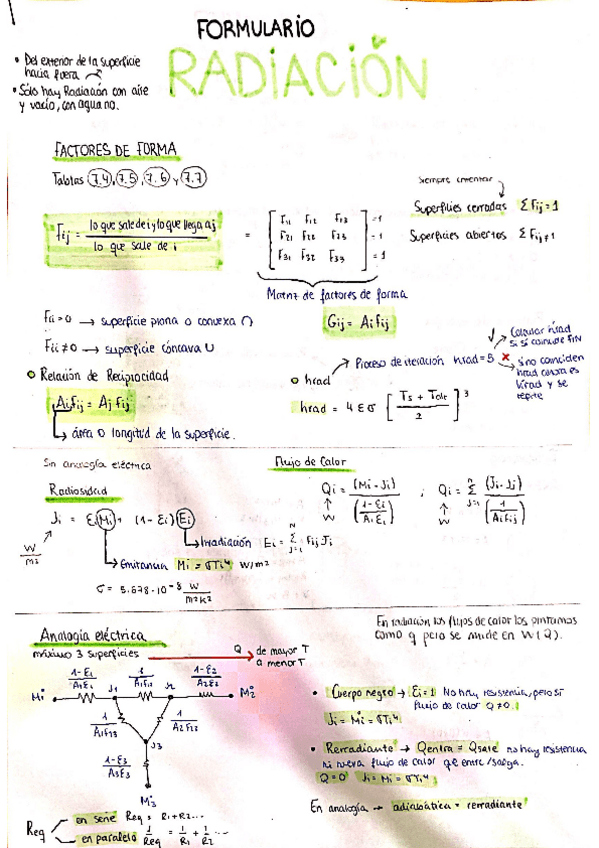 FORMULARIO
RADIACIÓN
• Del exterior de la superficie
hacia fuera
• Sólo hay Radiación con aire
y vacío, con agua no.
FACTORES DE FORMA
Tablas 7.4, 7.5, 7.6 y 7.7
Siempre
Superficies cerradas Σ Fij = 1
Superficies abiertas Σ Fij ≠ 1
Fij = lo que sale de i y lo que llega a j / lo que sale de i = [ F11 F12 F13 ] = 1
[ F21 F22 F23 ] = 1
[ F31 F32 F33 ] = 1
Matriz de factores de forma
Gij = Ai Fij
Fii = 0 → superficie plana o convexa ∩
Fii ≠ 0 → superficie cóncava ∪
• Relación de Reciprocidad
Ai Fij = Aj Fji
↳ área o longitud de la superficie.
Calcular hrad
si sí coincide FIN
Proceso de iteración hrad = 5 ×
si no coinciden
hrad
hrad y se
repite
• hrad
hrad = 4 ε σ [ Ts + / 2 ]³
Sin analogía eléctrica
Radiosidad
Ji = εi Mi + (1-εi) Ei
W/m²
↳ Irradiación Ei = Σ Fij Jj
↳ Emitancia Mi = σTi⁴ W/m²
σ = 5.678·10⁻⁸ W/m²k²
Flujo de Calor
Qi = (Mi - Ji) / ((1-εi)/(Ai εi)) ; Qi = Σ (Ji - Jj) / (1/(Ai Fij))
W W
En radiación los flujos de calor los pintamos
como q pero se mide en W (Q).
Analogía eléctrica
máximo 3 superficies
Q de mayor T
a menor T
1-ε1/A1ε1 1/A1F12 1-ε2/A2ε2
M1 J1 J2 M2
1/A1F13 1/A2F23
J3
1-ε3/A3ε3
M3
• Cuerpo negro → εi = 1 No hay resistencia, pero sí
flujo de calor Q ≠ 0.
Ji = Mi = σTi⁴
• Rerradiante → Qentra = Qsale no hay resistencia
ni nuevo flujo de calor que entre/salga.
Q = 0 Ji = Mi = σTi⁴
En analogía → adiabática = rerradiante
Req
en serie Req = R1 + R2...
en paralelo 1/Req = 1/R1 + 1/R2 ...